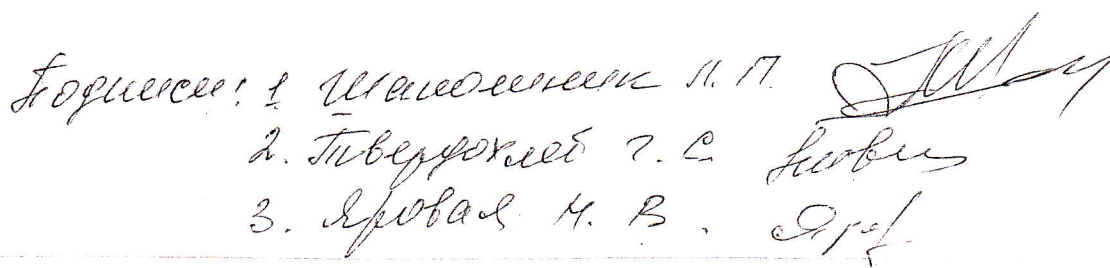 Подписи: 1 Шаломник Л. П.
2. Твердохлеб Г. С.
3. Яровая М. В.